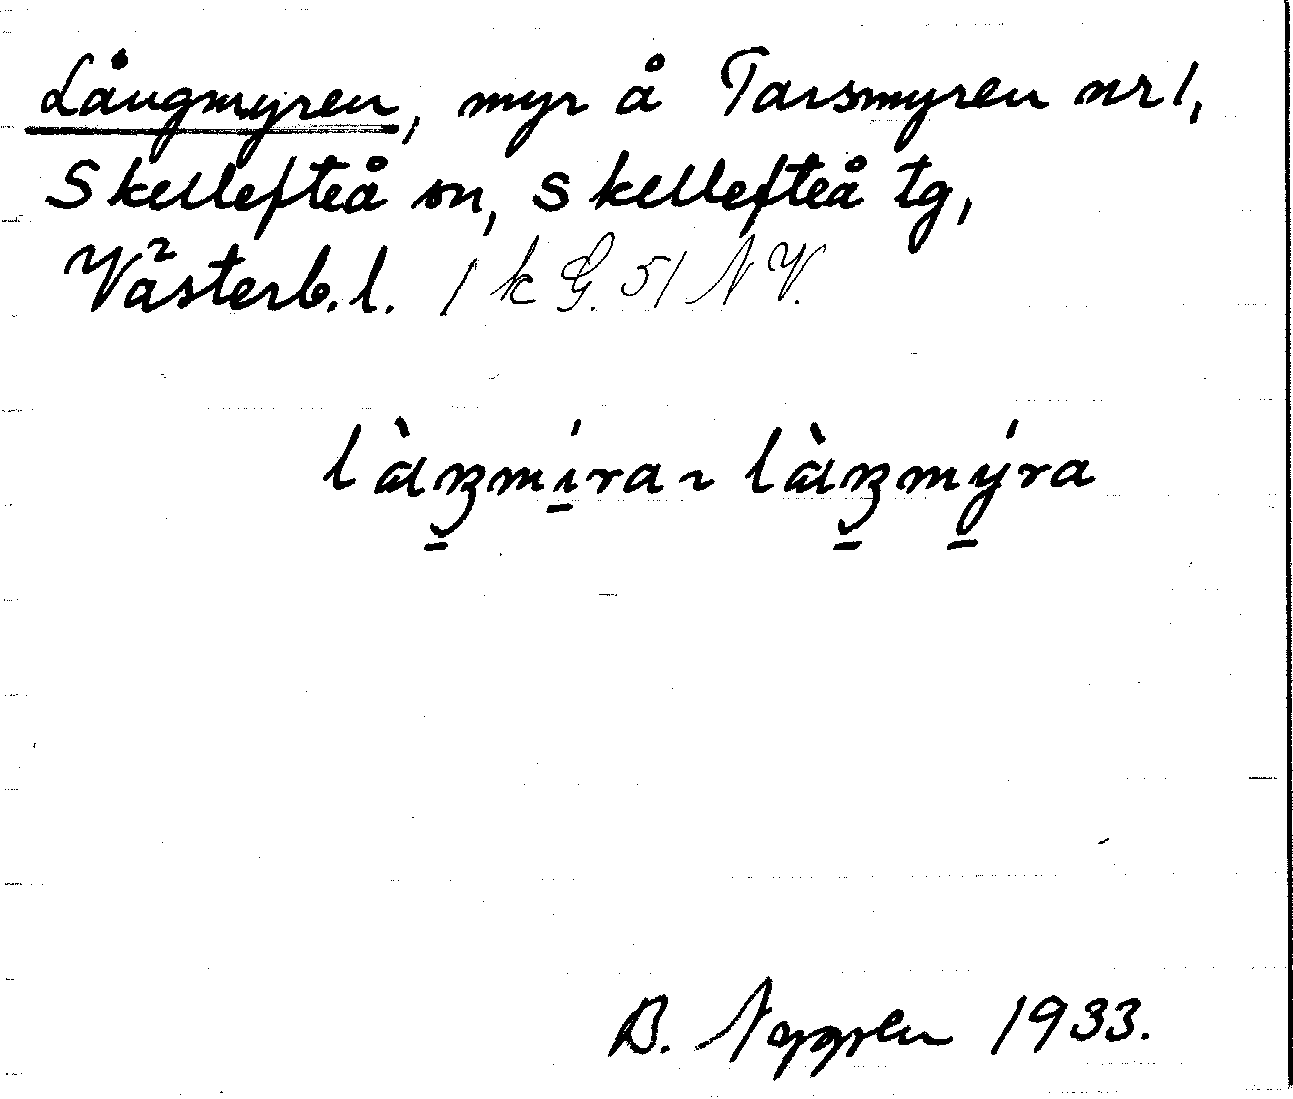 Långmyren, myr å Tarsmyren nr 1,
Skellefteå sn, Skellefteå tg,
Västerb. l. / k G. 51 NV.
B. Nygren 1933.